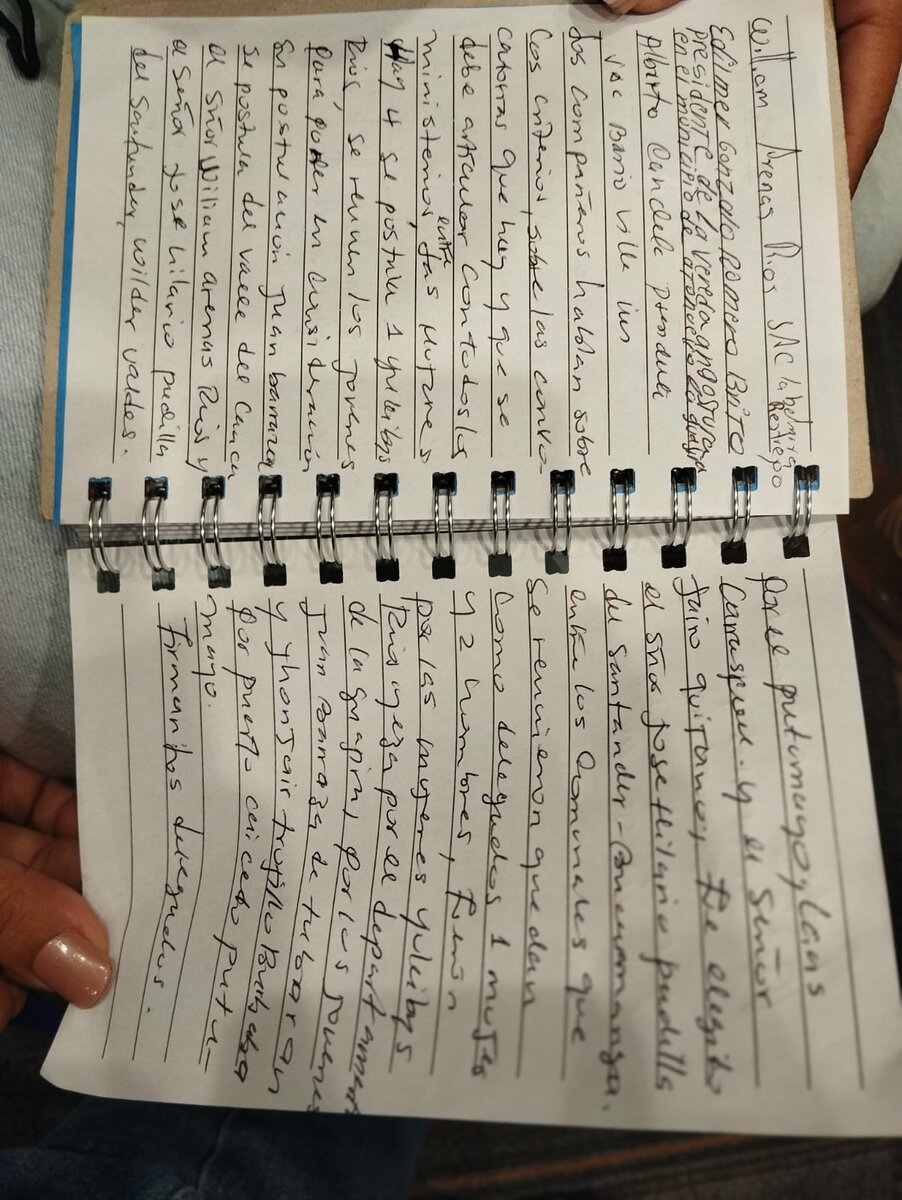 William Arenas Rios JAC la bomira
Restrepo
Edilmer Gonzalo romero Brito
presidente de la vereda angostura
en el municipio de
Alberto Candelo
JAC Barrio Villa luz
Los compañeros hablan sobre
Los criterios, sobre las convo
catorias que hay y que se
debe articular con todos los
ministerios, entre las mujeres
Hay 4 se postula 1 yuleibys
Rios, se reunen los jovenes
para poder en consideración
Su postulación juan barraza
Se postula del valle del Cauca
al señor William arenas Rios y
al Señor jose hilario padilla
del Santander, wilder valdes.
Por el putumayo y laas
Carrasquel. y el señor
Jairo quitamos, fue elegido
el señor jose Hilario padilla
de Santander - Bucaramanga.
entre los Comunales que
Se reunieron quedan
Como delegados 1 mujer
y 2 hombres,
por las mujeres yuleibys
Rios por el departamento
de la guajira, por los jovenes
juan barraza de tubaran
y yhon jair trujillo
por puerto caicedo putu-
mayo.
Firman los delegados.